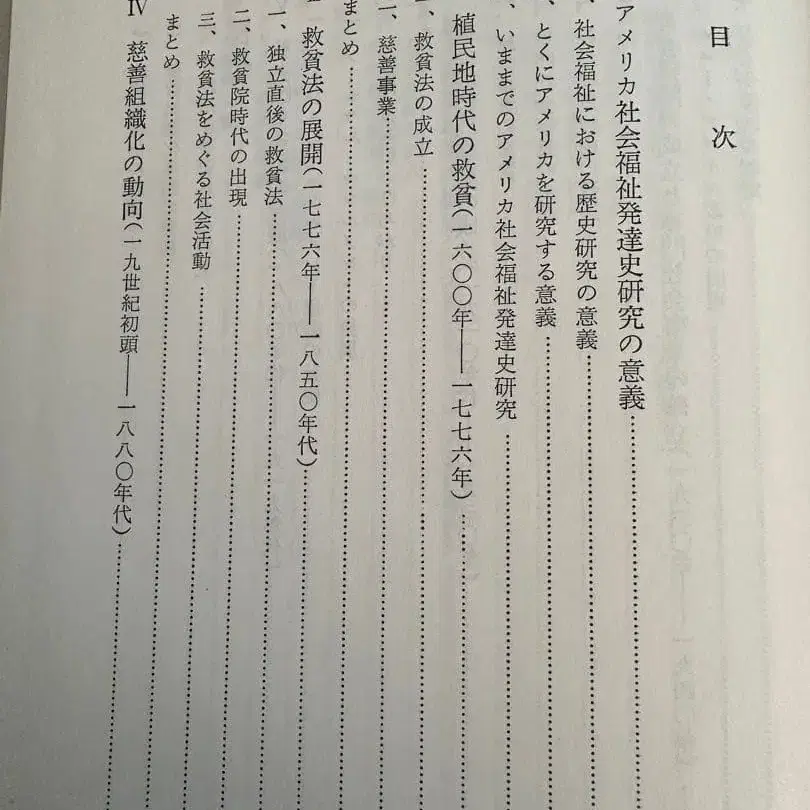 目次
アメリカ社会福祉発達史研究の意義
、社会福祉における歴史研究の意義
、とくにアメリカを研究する意義
、いままでのアメリカ社会福祉発達史研究
植民地時代の救貧(一六〇〇年──一七七六年)
、救貧法の成立
、慈善事業
まとめ
救貧法の展開(一七七六年──一八五〇年代)
一、独立直後の救貧法
二、救貧院時代の出現
三、救貧法をめぐる社会活動
まとめ
Ⅳ 慈善組織化の動向(一九世紀初頭──一八八〇年代)